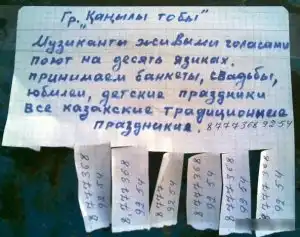 Гр. "Қаңылы тобы"
Музиканты живыми голосами
поют на десять языках.
принимаем банкеты, свадьбы,
юбилеи, детские праздники
все казахские традиционные
праздники. 8777368 92 54
8777368
92 54
8777368
92 54
8777368
92 54
8777368
92 54
8777368
92 54
8777368
92 54